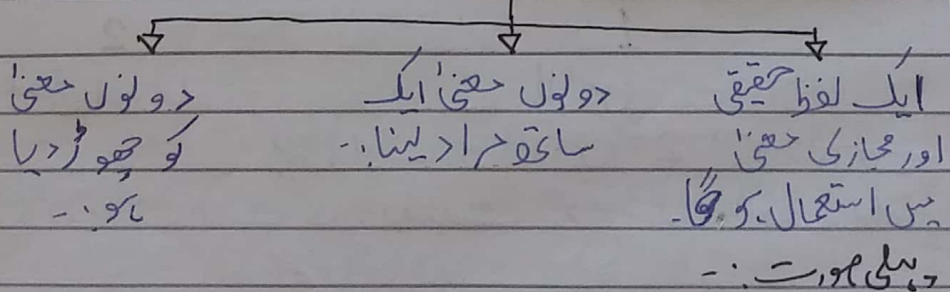 ایک لفظ حقیقی
اور مجازی معنیٰ
میں استعمال ہو گا۔
دونوں معنیٰ ایک
ساتھ مراد لینا:۔
دونوں معنیٰ
کو چھوڑ دیا
ہو:۔
پہلی صورت:۔